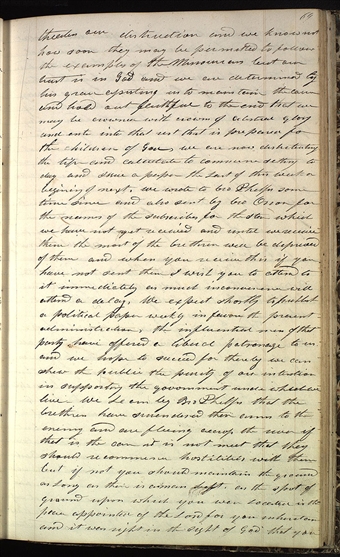 69
threaten our distruction and we know not
how soon they may be permited to follow
the examples of the Missourians but our
trust is in God and we are determined by
his grace assisting us to maintain the cause
and hold out faithful to the end that we
may be crowned with crowns of celestial glory
and enter into that rest that is prepared for
the children of God, we are now distributing
the tipe and calculate to commence setting to
day and issue a paper the last of this week or
begining of next, we wrote to bro Phelps some
time since and also sent by bro for
the names of the subscribers for the star which
we have not yet received and until we receive
them the most of the brethren will be deprived
of them and when you receive this if you
have not sent them I wish you to attend to
it immediately as much inconvenience will
attend a delay. We expect shortly to publish
a political paper weekly in favor of the present
administration, the influential men of that
party have offered a liberal patronage to us
and we hope to succeed for thereby we can
show the public the purity of our intention
in supporting the government under which we
live We learn by Bro Phelps that the
brethren have surrendered their arms to the
enemy and are fleeing across the river if
that is the case it is not meet that they
should recommence hostilities with them
but if not you should maintain the ground
as long as there is a man left. as the spot of
ground upon which you were located is the
place appointed of the Lord for your inheritance
and it was right in the sight of God that you